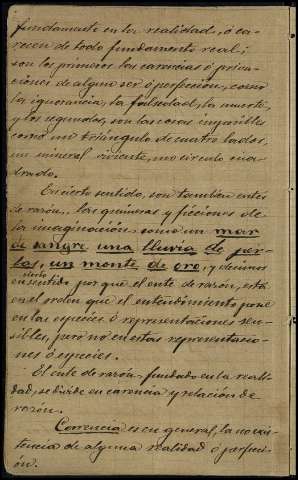 fundamento en la realidad, ó ca-
recen de todo fundamento real;
son los primeros las carencias ó priva-
ciónes de algun ser ó perfeccion, como
la ignorancia, la falsedad, la muerte,
y los segundos, son las cosas imposibles
como un triángulo de cuatro lados,
un mineral viviente, un circulo cua-
drado.
En cierto sentido, son tambien entes
de razon, las quimeras y ficciones de
la imaginacion como un mar
de sangre una lluvia de per-
las, un monte de oro, y decimos
cierto
en sentido por que el ente de razon, está
en el orden que el entendimiento pone
en las especies ó representaciones sen-
sibles, pero no en estas representacio-
nes ó especies.
El ente de razon fundado en la reali-
dad, se divide en carencia y relacion de
razon.
Carrencia es en general, la no exis-
tencia de alguna realidad ó perfecci-
ón.